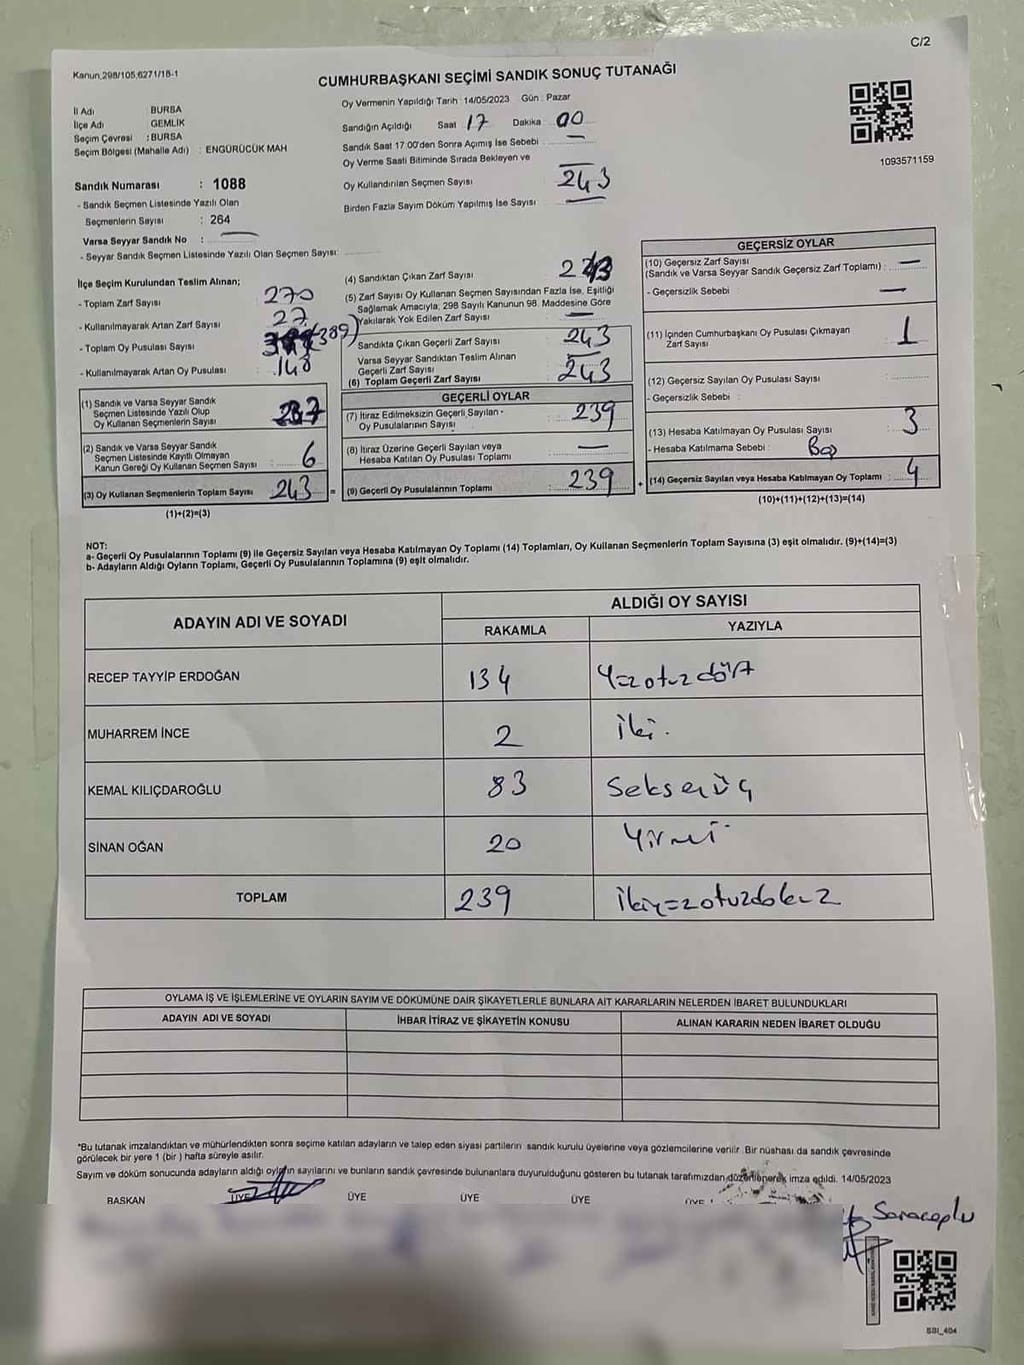 C/2
Kanun 298/105,6271/18-1
CUMHURBAŞKANI SEÇİMİ SANDIK SONUÇ TUTANAĞI
İl Adı : BURSA
İlçe Adı GEMLİK
Seçim Çevresi : BURSA
Seçim Bölgesi (Mahalle Adı) : ENGÜRÜCÜK MAH
Sandık Numarası : 1088
- Sandık Seçmen Listesinde Yazılı Olan
Seçmenlerin Sayısı : 264
Varsa Seyyar Sandık No :
- Seyyar Sandık Seçmen Listesinde Yazılı Olan Seçmen Sayısı:
Oy Vermenin Yapıldığı Tarih : 14/05/2023 Gün : Pazar
Sandığın Açıldığı Saat 17 Dakika 00
Sandık Saat 17:00'den Sonra Açımış İse Sebebi : —
Oy Verme Saati Bitiminde Sırada Bekleyen ve
Oy Kullandırılan Seçmen Sayısı 243
Birden Fazla Sayım Döküm Yapılmış İse Sayısı
1093571159
İlçe Seçim Kurulundan Teslim Alınan;
- Toplam Zarf Sayısı 270
- Kullanılmayarak Artan Zarf Sayısı 27
- Toplam Oy Pusulası Sayısı (389)
- Kullanılmayarak Artan Oy Pusulası 148
(1) Sandık ve Varsa Seyyar Sandık
Seçmen Listesinde Yazılı Olup
Oy Kullanan Seçmenlerin Sayısı 237
(2) Sandık ve Varsa Seyyar Sandık
Seçmen Listesinde Kayıtlı Olmayan
Kanun Gereği Oy Kullanan Seçmen Sayısı 6
(3) Oy Kullanan Seçmenlerin Toplam Sayısı 243 =
(1)+(2)=(3)
(4) Sandıktan Çıkan Zarf Sayısı 243
(5) Zarf Sayısı Oy Kullanan Seçmen Sayısından Fazla İse, Eşitliği
Sağlamak Amacıyla; 298 Sayılı Kanunun 98. Maddesine Göre
Yakılarak Yok Edilen Zarf Sayısı —
Sandıkta Çıkan Geçerli Zarf Sayısı 243
Varsa Seyyar Sandıktan Teslim Alınan
Geçerli Zarf Sayısı —
(6) Toplam Geçerli Zarf Sayısı 243
GEÇERLİ OYLAR
(7) İtiraz Edilmeksizin Geçerli Sayılan -
Oy Pusulalarının Sayısı 239
(8) İtiraz Üzerine Geçerli Sayılan veya
Hesaba Katılan Oy Pusulası Toplamı —
(9) Geçerli Oy Pusulalarının Toplamı 239 +
GEÇERSİZ OYLAR
(10) Geçersiz Zarf Sayısı
(Sandık ve Varsa Seyyar Sandık Geçersiz Zarf Toplamı) : —
- Geçersizlik Sebebi : —
(11) İçinden Cumhurbaşkanı Oy Pusulası Çıkmayan
Zarf Sayısı 1
(12) Geçersiz Sayılan Oy Pusulası Sayısı
- Geçersizlik Sebebi :
(13) Hesaba Katılmayan Oy Pusulası Sayısı 3
- Hesaba Katılmama Sebebi : Boş
(14) Geçersiz Sayılan veya Hesaba Katılmayan Oy Toplamı : 4
(10)+(11)+(12)+(13)=(14)
NOT:
a- Geçerli Oy Pusulalarının Toplamı (9) ile Geçersiz Sayılan veya Hesaba Katılmayan Oy Toplamı (14) Toplamları, Oy Kullanan Seçmenlerin Toplam Sayısına (3) eşit olmalıdır. (9)+(14)=(3)
b- Adayların Aldığı Oyların Toplamı, Geçerli Oy Pusulalarının Toplamına (9) eşit olmalıdır.
ADAYIN ADI VE SOYADI ALDIĞI OY SAYISI
RAKAMLA YAZIYLA
RECEP TAYYİP ERDOĞAN 134 Yüzotuzdört
MUHARREM İNCE 2 iki.
KEMAL KILIÇDAROĞLU 83 Seksenüç
SİNAN OĞAN 20 Yirmi
TOPLAM 239 ikiyüzotuzdokuz
OYLAMA İŞ VE İŞLEMLERİNE VE OYLARIN SAYIM VE DÖKÜMÜNE DAİR ŞİKAYETLERLE BUNLARA AİT KARARLARIN NELERDEN İBARET BULUNDUKLARI
ADAYIN ADI VE SOYADI İHBAR İTİRAZ VE ŞİKAYETİN KONUSU ALINAN KARARIN NEDEN İBARET OLDUĞU
*Bu tutanak imzalandıktan ve mühürlendikten sonra seçime katılan adayların ve talep eden siyasi partilerin sandık kurulu üyelerine veya gözlemcilerine verilir. Bir nüshası da sandık çevresinde
görülecek bir yere 1 (bir) hafta süreyle asılır.
Sayım ve döküm sonucunda adayların aldığı oyların sayılarını ve bunların sandık çevresinde bulunanlara duyurulduğunu gösteren bu tutanak tarafımızdan düzenlenerek imza edildi. 14/05/2023
BAŞKAN ÜYE ÜYE ÜYE ÜYE ÜYE
Saraçoğlu
SBI_404